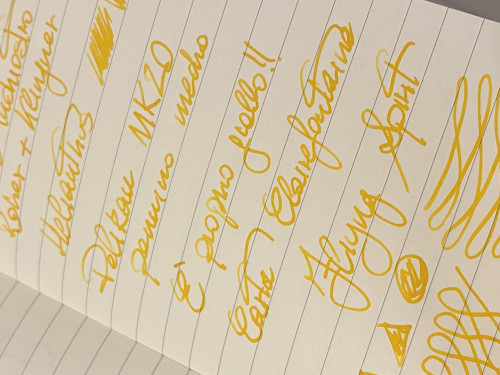 Inchiostro
Roher + Klingner
Helianthus
Pelikan MK20
pennino medio
E' proprio giallo!!
Carta Clairefontaine
Flying Spirit